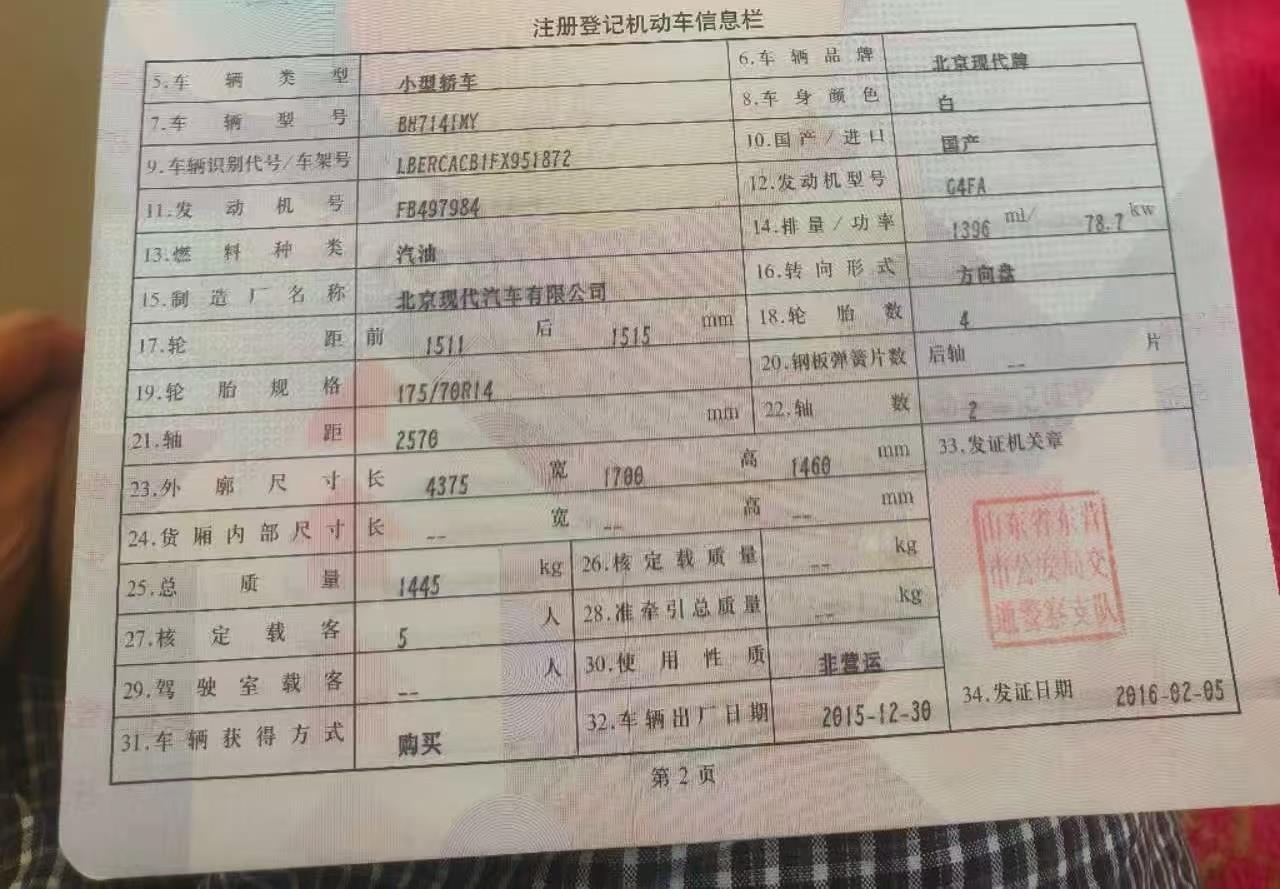 注册登记机动车信息栏
5.车辆类型 小型轿车 6.车辆品牌 北京现代牌
7.车辆型号 BH7141MY 8.车身颜色 白
9.车辆识别代号/车架号 LBERCACB1FX951872 10.国产/进口 国产
11.发动机号 FB497984 12.发动机型号 G4FA
13.燃料种类 汽油 14.排量/功率 1396 ml/ 78.7 kw
15.制造厂名称 北京现代汽车有限公司 16.转向形式 方向盘
17.轮距 前 1511 后 1515 mm 18.轮胎数 4
19.轮胎规格 175/70R14 20.钢板弹簧片数 后轴 -- 片
21.轴距 2570 mm 22.轴数 2
23.外廓尺寸 长 4375 宽 1700 高 1460 mm 33.发证机关章
24.货厢内部尺寸 长 -- 宽 -- 高 -- mm
山东省东营
市公安局交
通警察支队
25.总质量 1445 kg 26.核定载质量 -- kg
27.核定载客 5 人 28.准牵引总质量 -- kg
29.驾驶室载客 -- 人 30.使用性质 非营运
31.车辆获得方式 购买 32.车辆出厂日期 2015-12-30 34.发证日期 2016-02-05
第2页